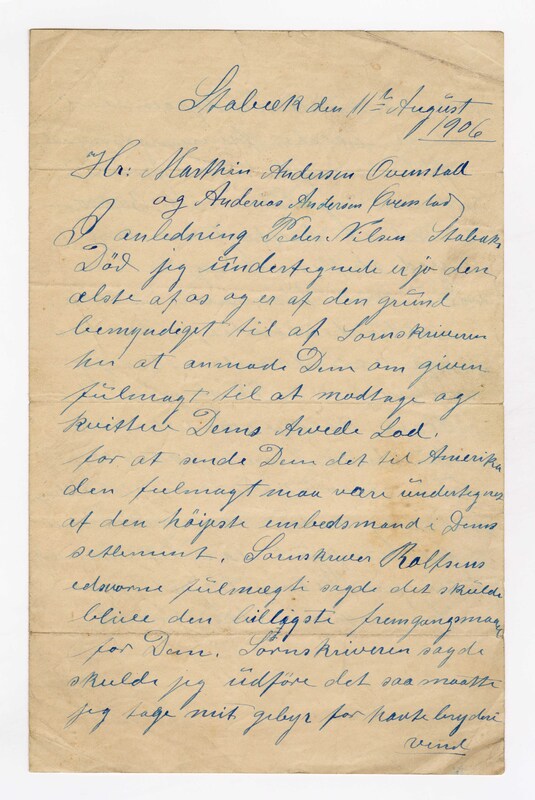 Stabæk den 11te August
1906
Hr: Marthin Andersen Ovenstad
og Andreas Andersen Ovenstad
I anledning Peder Nilsen Stabæks
Död jeg undertegnede er jo den
ælste af os og er af den grund
bemyndiget til af Sornskriveren
her at anmode Dem om given
fulmagt til at modtage og
kvittere Dems Arvede Lod.
for at sende Dem det til Amerika
den fulmagt maa være undertegnet
af den höieste embedsmand i Dems
setlement. Sornskriver Rolfsens
edsvorne fulmægti sagde det skulde
blive den billigste fremgangsmaade
for Dem. Sornskriveren sagde
skulde jeg udföre det saa maatte
jeg tage mit gebyr for
vend